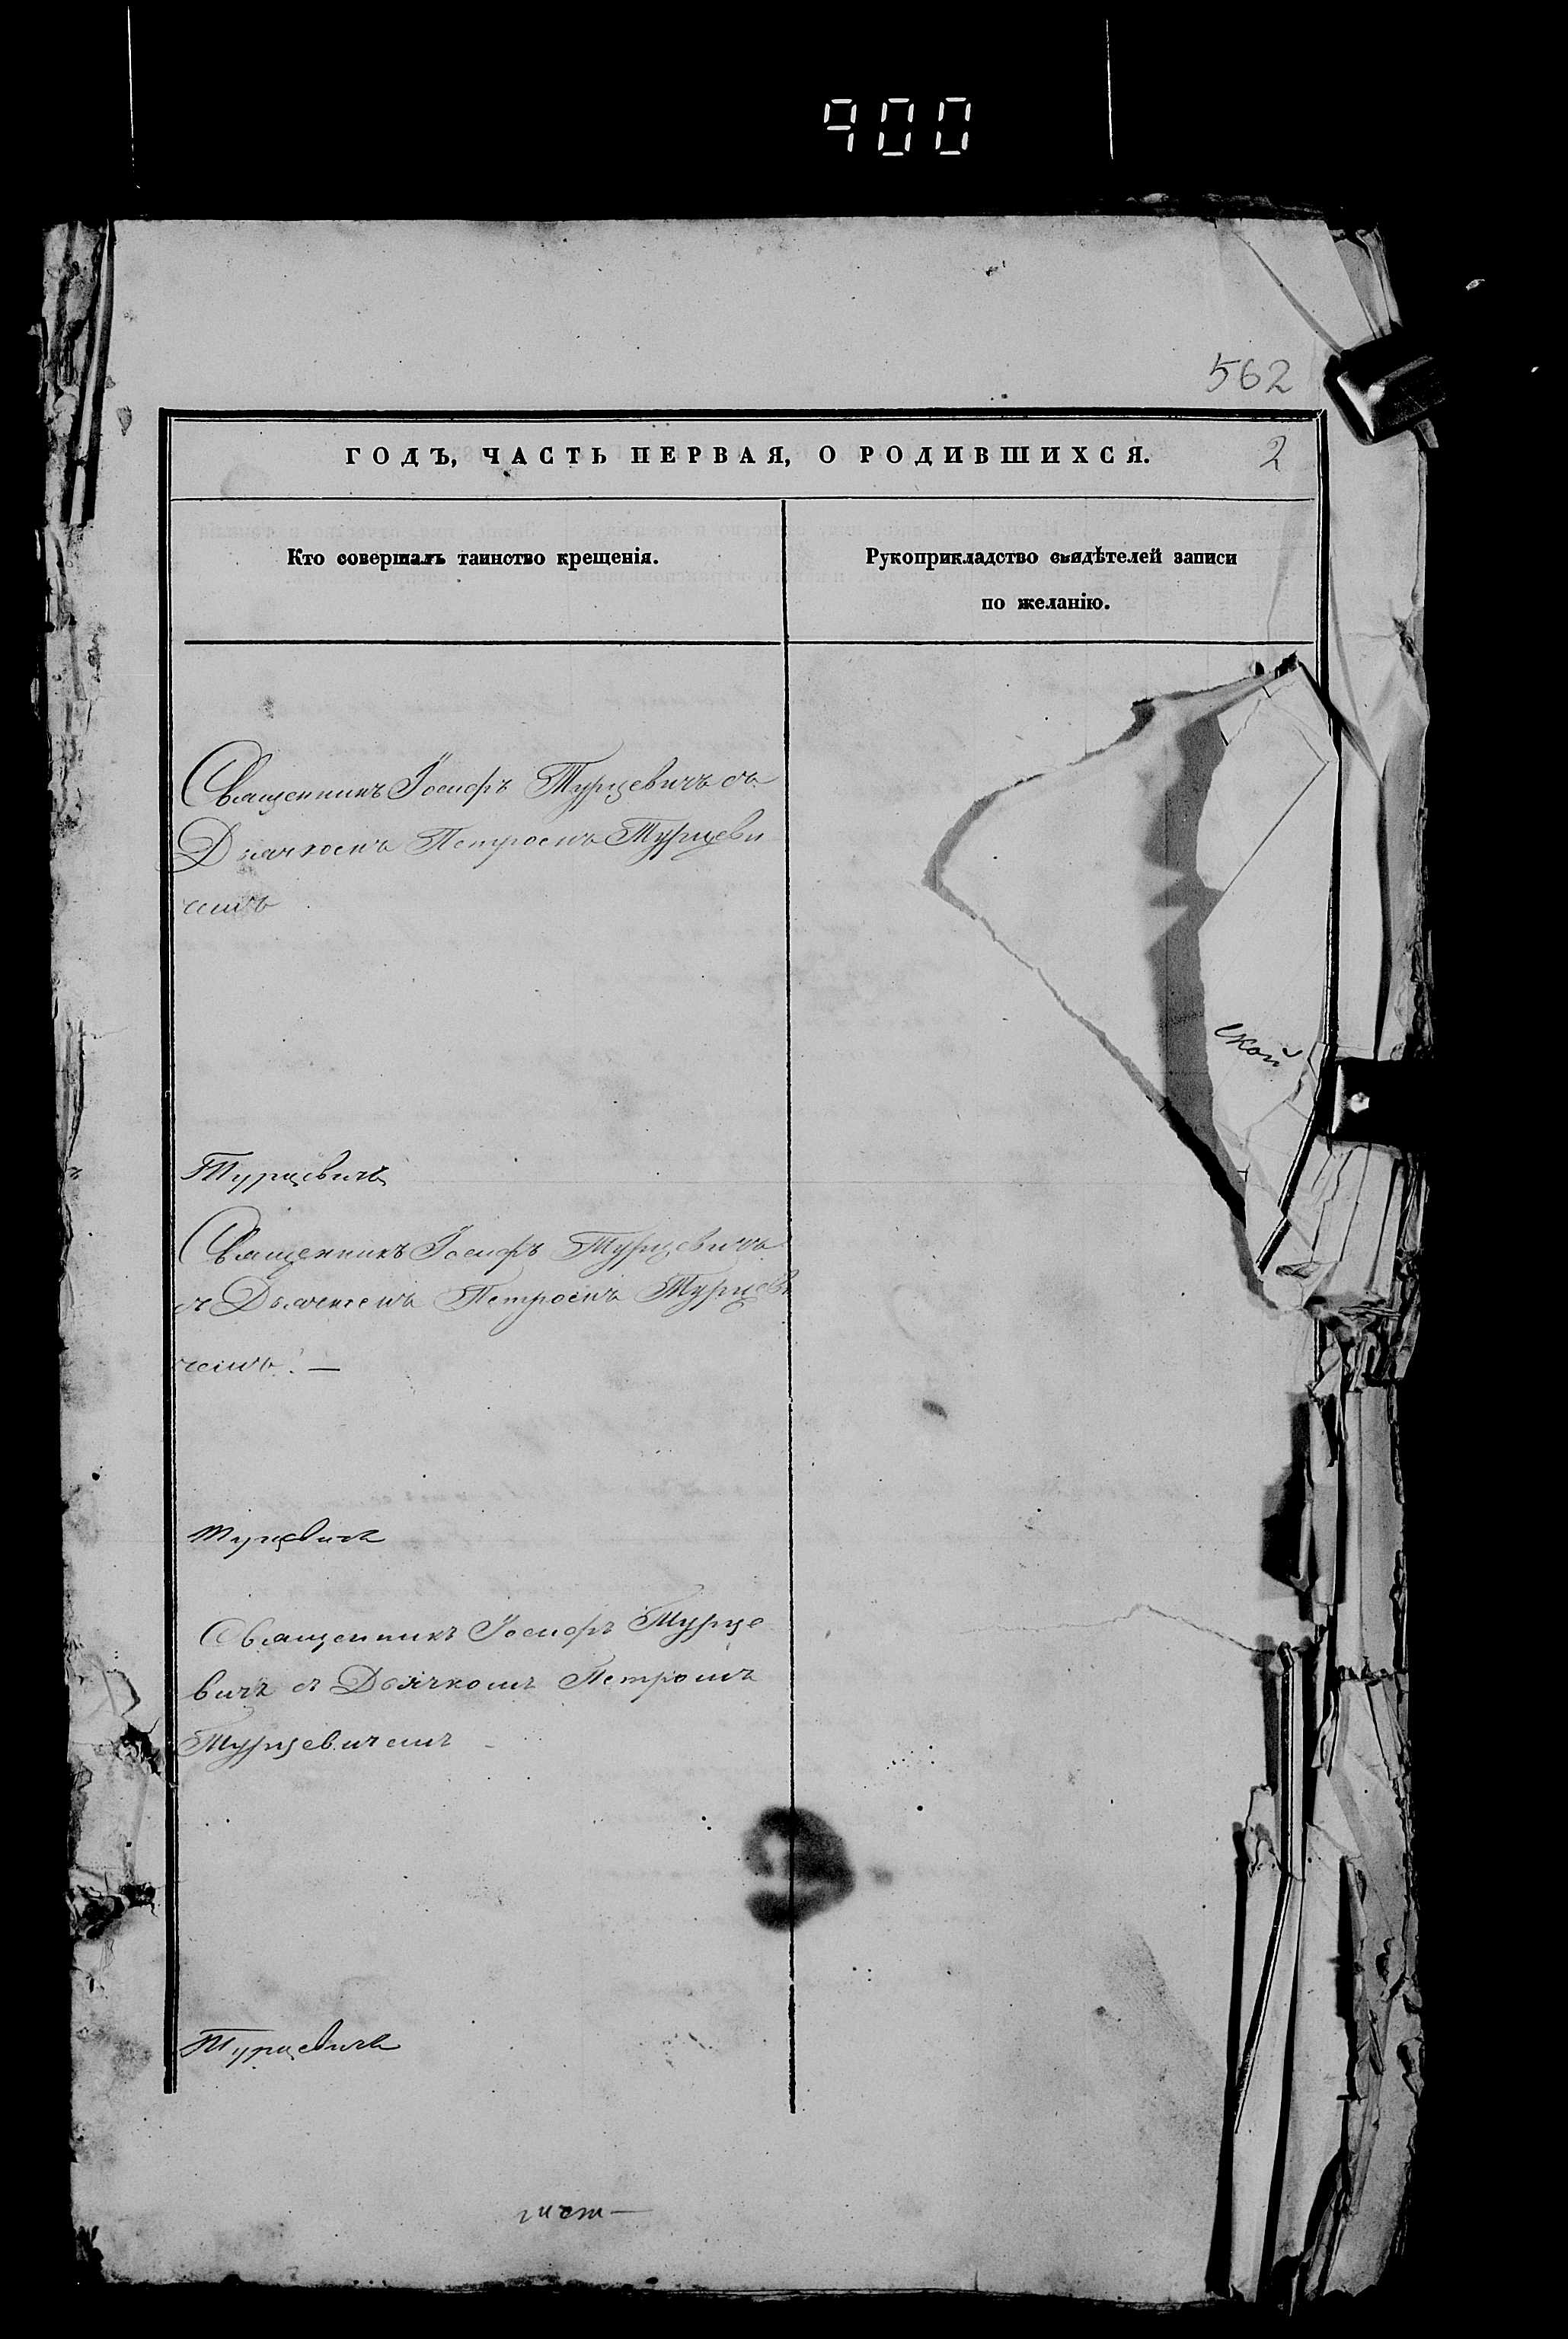 900
562
ГОДЪ, ЧАСТЬ ПЕРВАЯ, О РОДИВШИХСЯ. 2
Кто совершалъ таинство крещенія.
Рукоприкладство свидѣтелей записи
по желанію.
Священникъ Іосифъ Турцевичъ съ
Дьячкомъ Петромъ Турцеви
чемъ
ской
Турцевичъ
Священникъ Іосифъ Турцевичъ
съ Дьячкомъ Петромъ Турцеви
чемъ. —
Турцевичъ
Священникъ Іосифъ Турце
вичъ съ Дьячкомъ Петромъ
Турцевичемъ
Турцевичъ